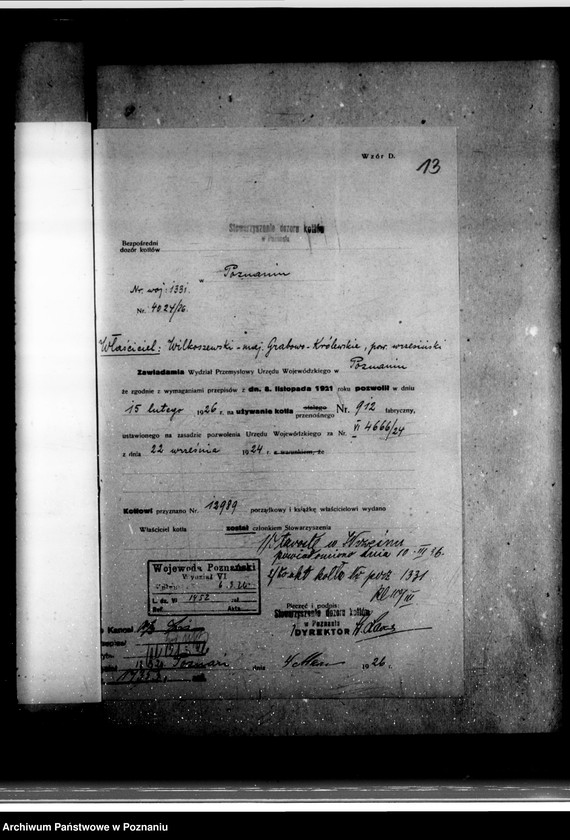 Wzór D.
13
Stowarzyszenie dozoru kotłów
w Poznaniu
Bezpośredni
dozór kotłów
w Poznaniu
Nr. woj. 1331.
Nr. 4024/26.
Właściciel: Wilkoszewski - maj. Grabowo-Królewskie, pow. wrzesiński
Zawiadamia Wydział Przemysłowy Urzędu Wojewódzkiego w Poznaniu
że zgodnie z wymaganiami przepisów z dn. 8. listopada 1921 roku pozwolił w dniu
15 lutego 1926 r. na używanie kotła stałego przenośnego Nr. 912 fabryczny,
ustawionego na zasadzie pozwolenia Urzędu Wojewódzkiego za Nr. VI 4666/24
z dnia 22 września 1924 r. z warunkiem, że
Kotłowi przyznano Nr. 12989 porządkowy i książkę właścicielowi wydano
Właściciel kotła został członkiem Stowarzyszenia
1/ Starostę w Wrześni
powiadomiono dnia 10.III 26.
2/ do akt kotła Nr 1331
Województwo Poznański
Wydział VI
6.3.26
L. dz. VI 1452
Ref. Akta
Pieczęć i podpis:
Stowarzyszenie dozoru kotłów
w Poznaniu
DYREKTOR
Kancel
Poznań dnia 4 1926 r.
Archiwum Państwowe w Poznaniu